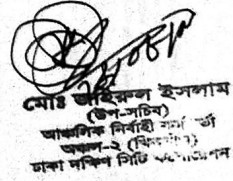 মোঃ জাহিরুল ইসলাম
(উপ-সচিব)
আঞ্চলিক নির্বাহী
অঞ্চল-২ (খিলগাঁও)
ঢাকা দক্ষিণ সিটি কর্পোরেশন